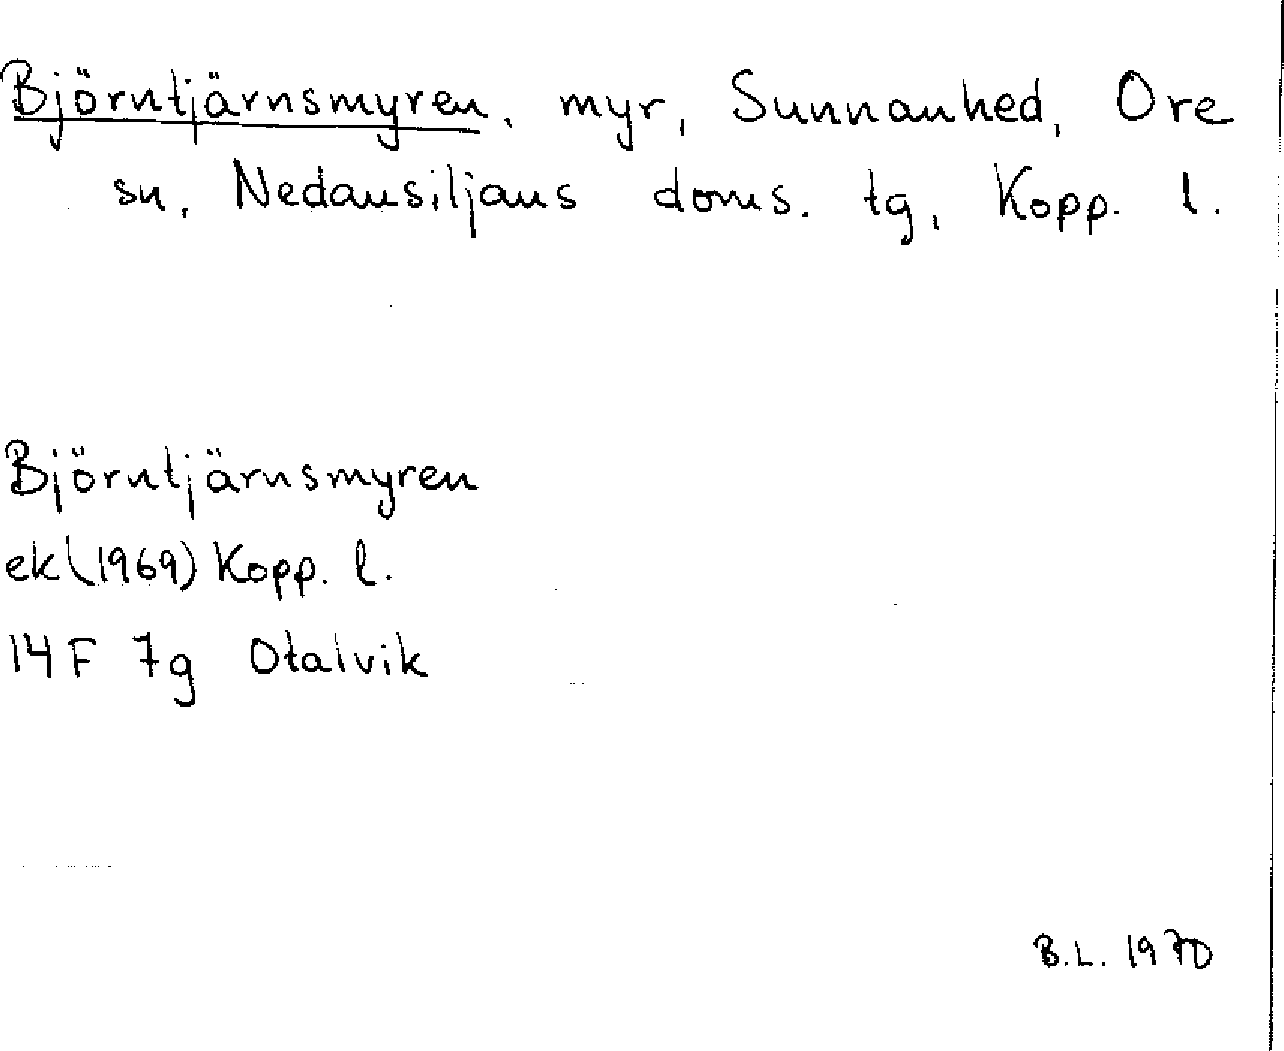 Björntjärnsmyren, myr, Sunnanhed, Ore
sn, Nedansiljans doms. tg, Kopp. l.
Björntjärnsmyren
ek (1969) Kopp. l.
14 F 7g Otalvik
B.L. 1970